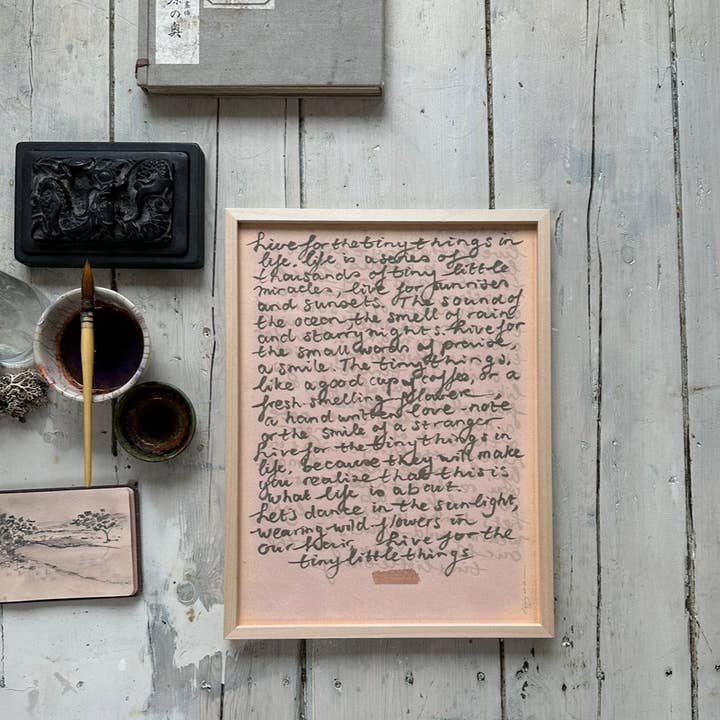 の奥
Live for the tiny things in
life. life is a series of
thousands of tiny little
miracles, live for sunrises
and sunsets. The sound of
the ocean, the smell of rain
and starry nights. Live for
the small words of praise,
a smile. The tiny things,
like a good cup of coffee, or a
fresh smelling flower,
a hand written love-note
or the smile of a stranger
Live for the tiny things in
life, because they will make
you realize that this is
what life is about.
Let's dance in the sunlight,
wearing wild flowers in
our hair Live for the
tiny little things